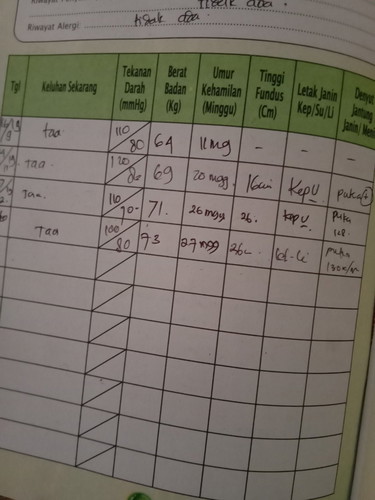 tidak ada.
Riwayat Alergi:
tidak ada.
Tgl Keluhan Sekarang Tekanan Darah (mmHg) Berat Badan (Kg) Umur Kehamilan (Minggu) Tinggi Fundus (Cm) Letak Janin Kep/Su/Li Denyut Jantung Janin/
taa 110/80 64 11 mg - - -
taa. 120/80 69 20 mgg. 16cm Kep U
taa. 110/70 71. 26 mgg 26. kep U.
taa 100/80 73 27 mgg